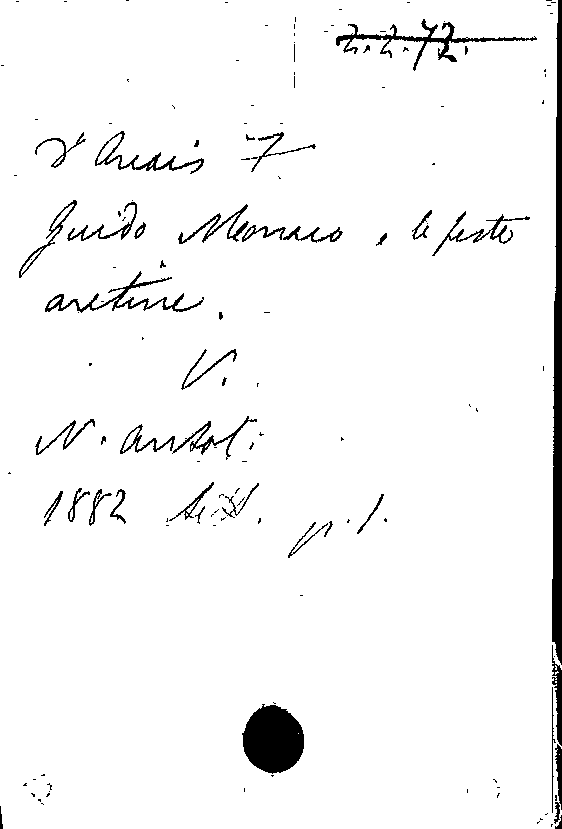 2.2.72.
D'Arcais F
Guido Monaco e le feste
aretine.
V.
N. Antol.
1882 Sett. p. 1.